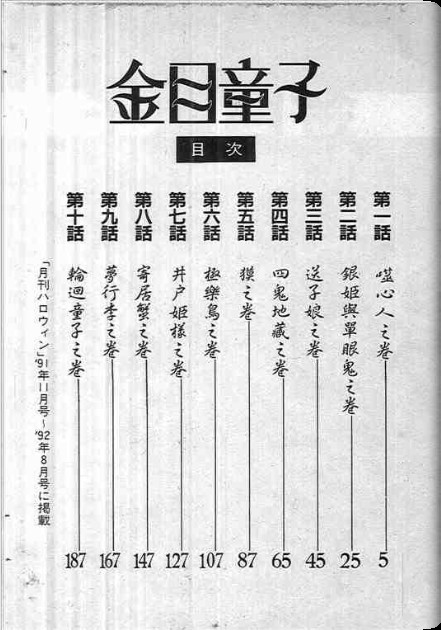 金目童子
目次
第一話 噬心人之卷 5
第二話 銀姫與單眼鬼之卷 25
第三話 送子娘之卷 45
第四話 四鬼地藏之卷 65
第五話 獏之卷 87
第六話 極樂鳥之卷 107
第七話 井戸姫樣之卷 127
第八話 寄居蟹之卷 147
第九話 夢行李之卷 167
第十話 輪迴童子之卷 187
「月刊ハロウィン」'91年11月号〜'92年8月号に掲載